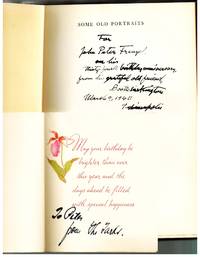 SOME OLD PORTRAITS
For
John Peter Frenzel
on his
thirty-first birthday anniversary
from his grateful old friend,
Booth Tarkington
Indianapolis
May your birthday be
brighter than ever
this year and the
days ahead be filled
with special happiness
To Pete
from the Tarks.